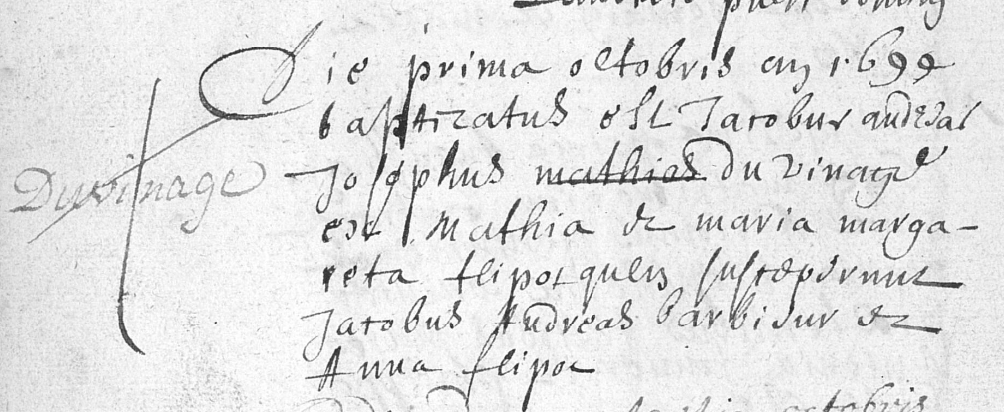 Die prima octobris an 1699
baptizatus est Jacobus andreas
Duvinage
Josephus mathias du vinage
ex Mathia et maria marga-
reta flipot quem susceperunt
Jacobus Andreas barbieur et
Anna flipot
octobris